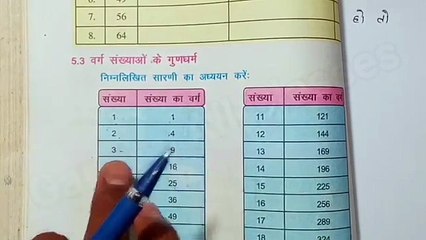 7. 56
8. 64
हो तो
5.3 वर्ग संख्याओं के गुणधर्म
निम्नलिखित सारणी का अध्ययन करें:
संख्या संख्या का वर्ग
1 1
2 4
3 9
16
25
36
49
संख्या संख्या का
11 121
12 144
13 169
15 225
16 256
17 289
18 324